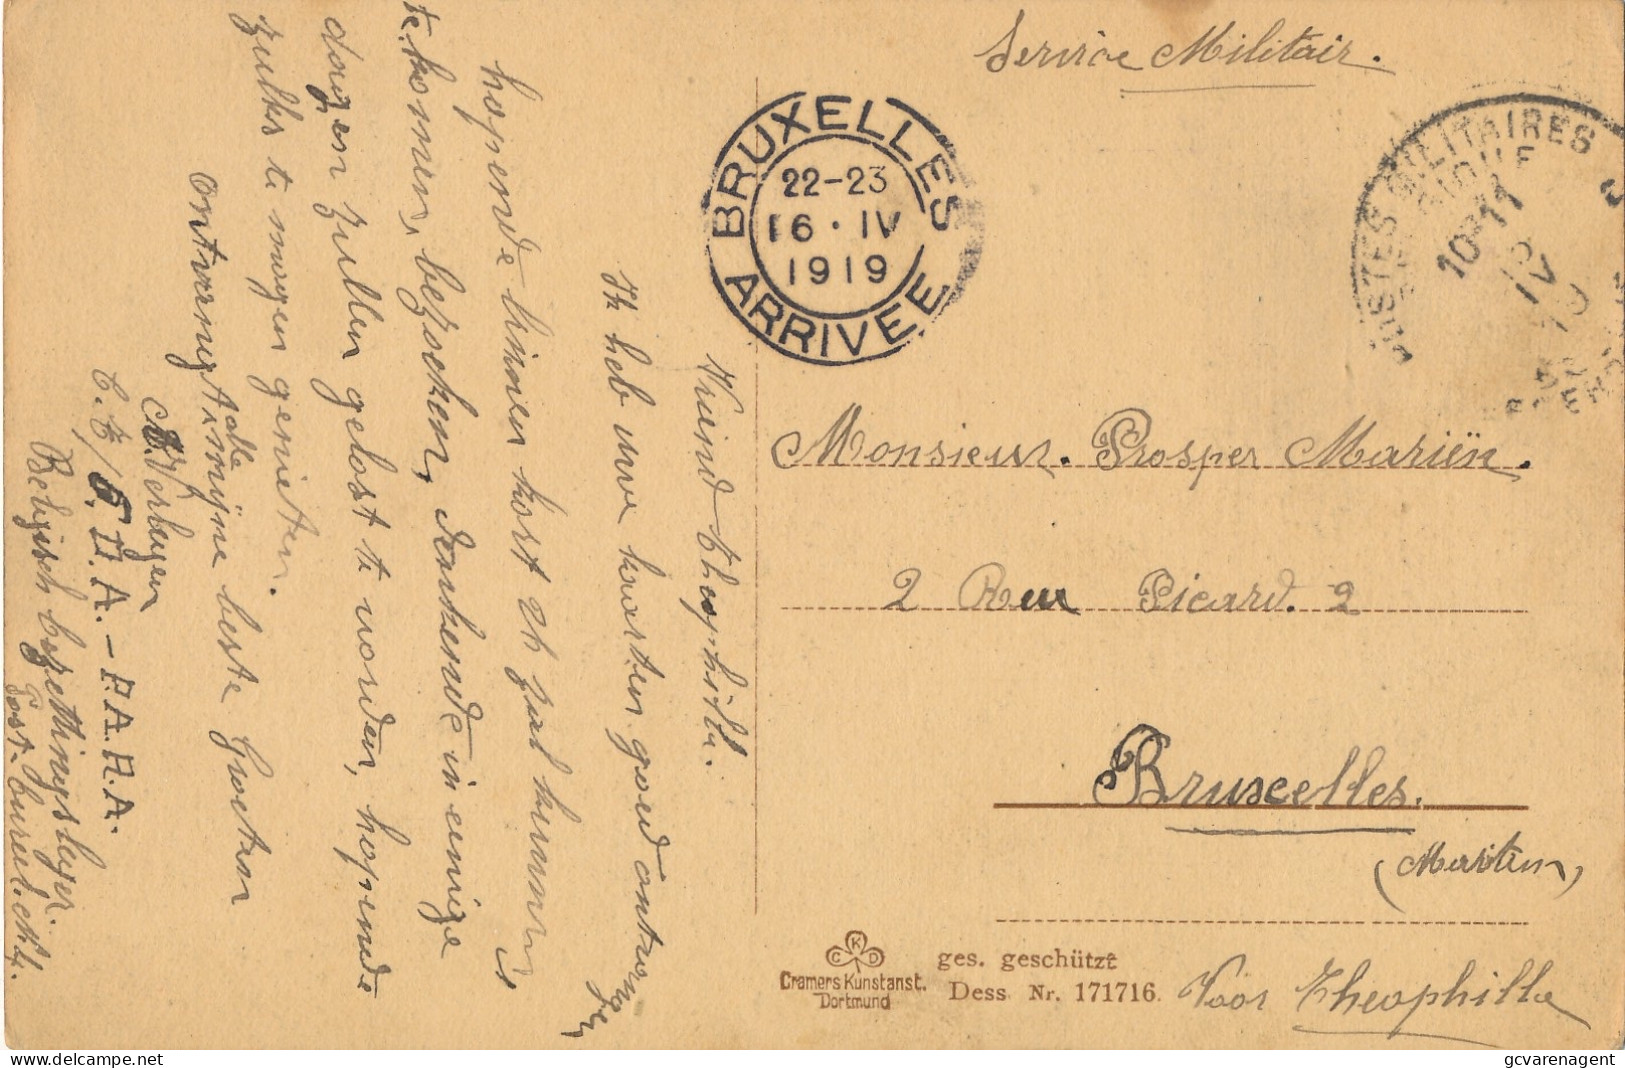 Service Militair.
BRUXELLES
22-23
16 · IV
1919
ARRIVEE
POSTES MILITAIRES
10 11
IV
19
Vriend Theophilla.
Ik heb uwe kaarten goed ontvangen
hopende binnen kort zal kunnen
te komen, bezoeken, denkende in eenige
dagen zullen gelost te worden, hopende
zulks te mogen genieten.
Ontvangt alle mijne beste Groeten
Verhagen
C. F/6. D.A. – P.A.R.A.
Belgisch bezettingsleger.
Post-bureel. N 4.
Monsieur. Prosper Mariën.
2 Rue Picard. 2
Bruxelles.
(Maritim)
Voor Theophilla
C K D
Cramers Kunstanst.
Dortmund
ges. geschützt
Dess. Nr. 171716.
gcvarenagent
delcampe.net